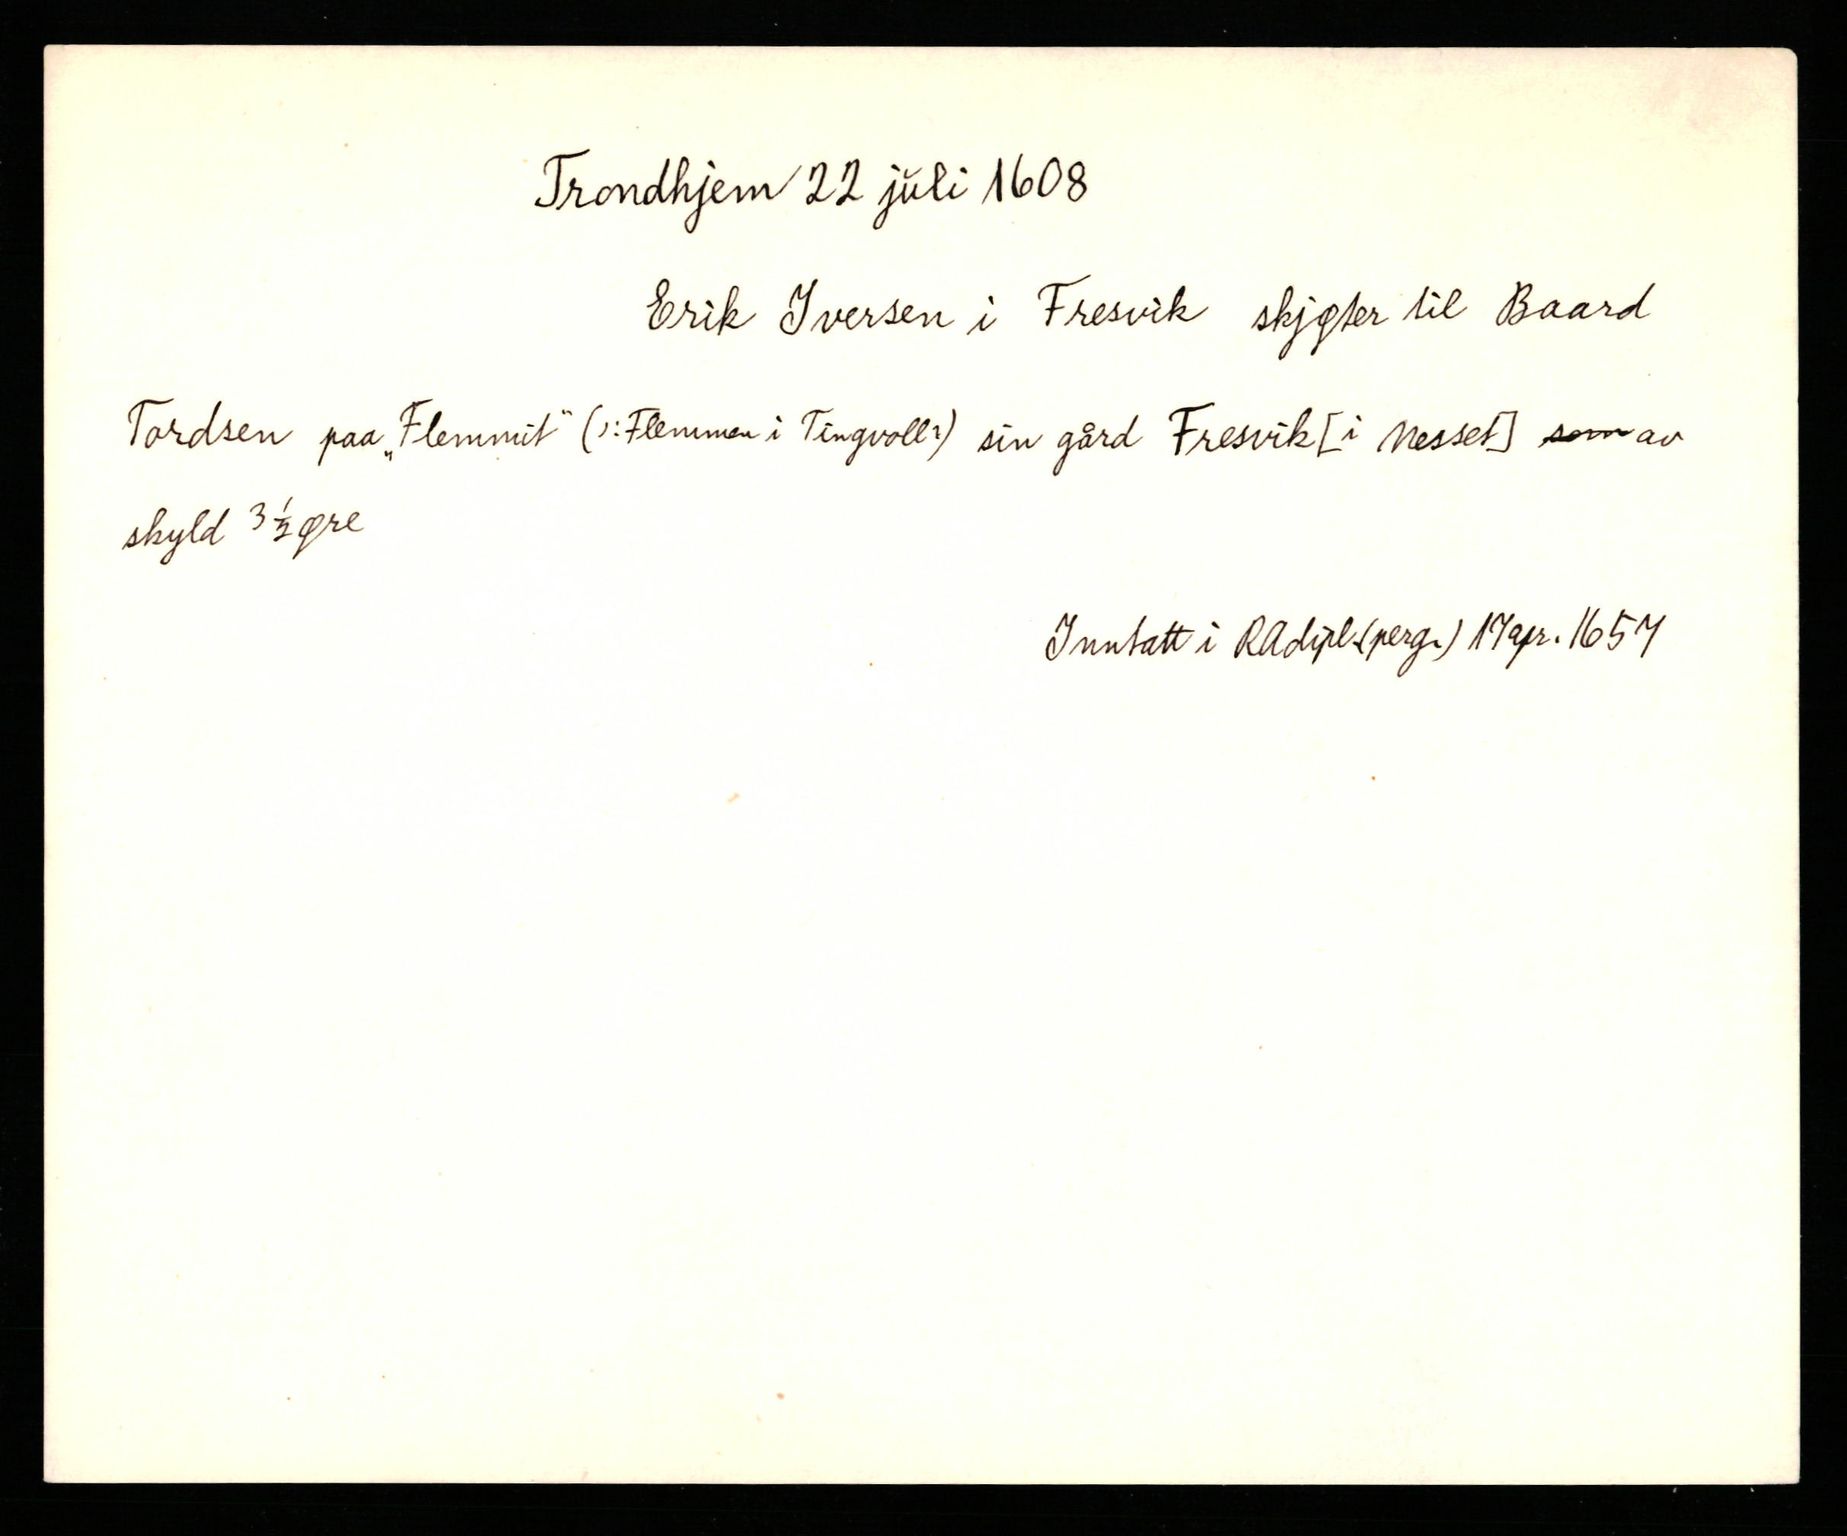 Trondhjem 22 juli 1608
Erik Iversen i Fresvik skjøter til Baard
Tordsen paa „Flemmit“ (ɔ: Flemmen i Tingvoll?) sin gård Fresvik [i Nesset] ~~som~~ av
skyld 3 1/2 øre
Inntatt i RAdipl. (perg.) 17 apr. 1657